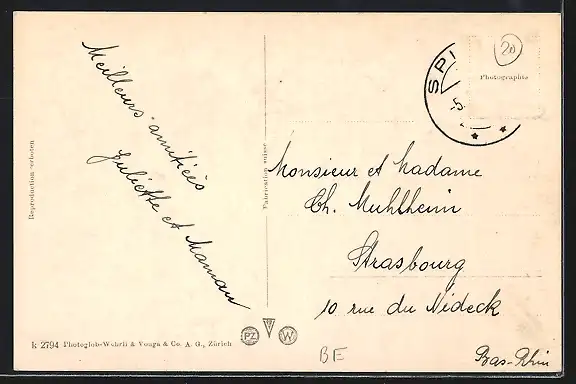 Meilleurs amitiées
Juliette et Maman
Reproduction verboten
Fabrication suisse
k 2794 Photoglob-Wehrli & Vouga & Co. A. G., Zürich
PZ
W
SPI
-5.
20
Photographie
Monsieur et Madame
Ch. Muhlheim
Strasbourg
10 rue du Nideck
BE
Bas-Rhin